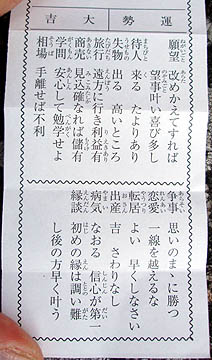 運勢 大吉
願望 改めかえてすれば
望事叶い喜び多し
待人 来る たよりあり
失物 出る 高いところ
旅行 遠方に行き利益有
商売 見込確なれば儲有
学問 安心して勉学せよ
相場 手離せば不利
争事 思いのまゝに勝つ
恋愛 一線を越えるな
転居 よい 早くしなさい
出産 吉 さわりなし
病気 なおる 信心が第一
縁談 初めの縁は調い難
し後の方早く叶う